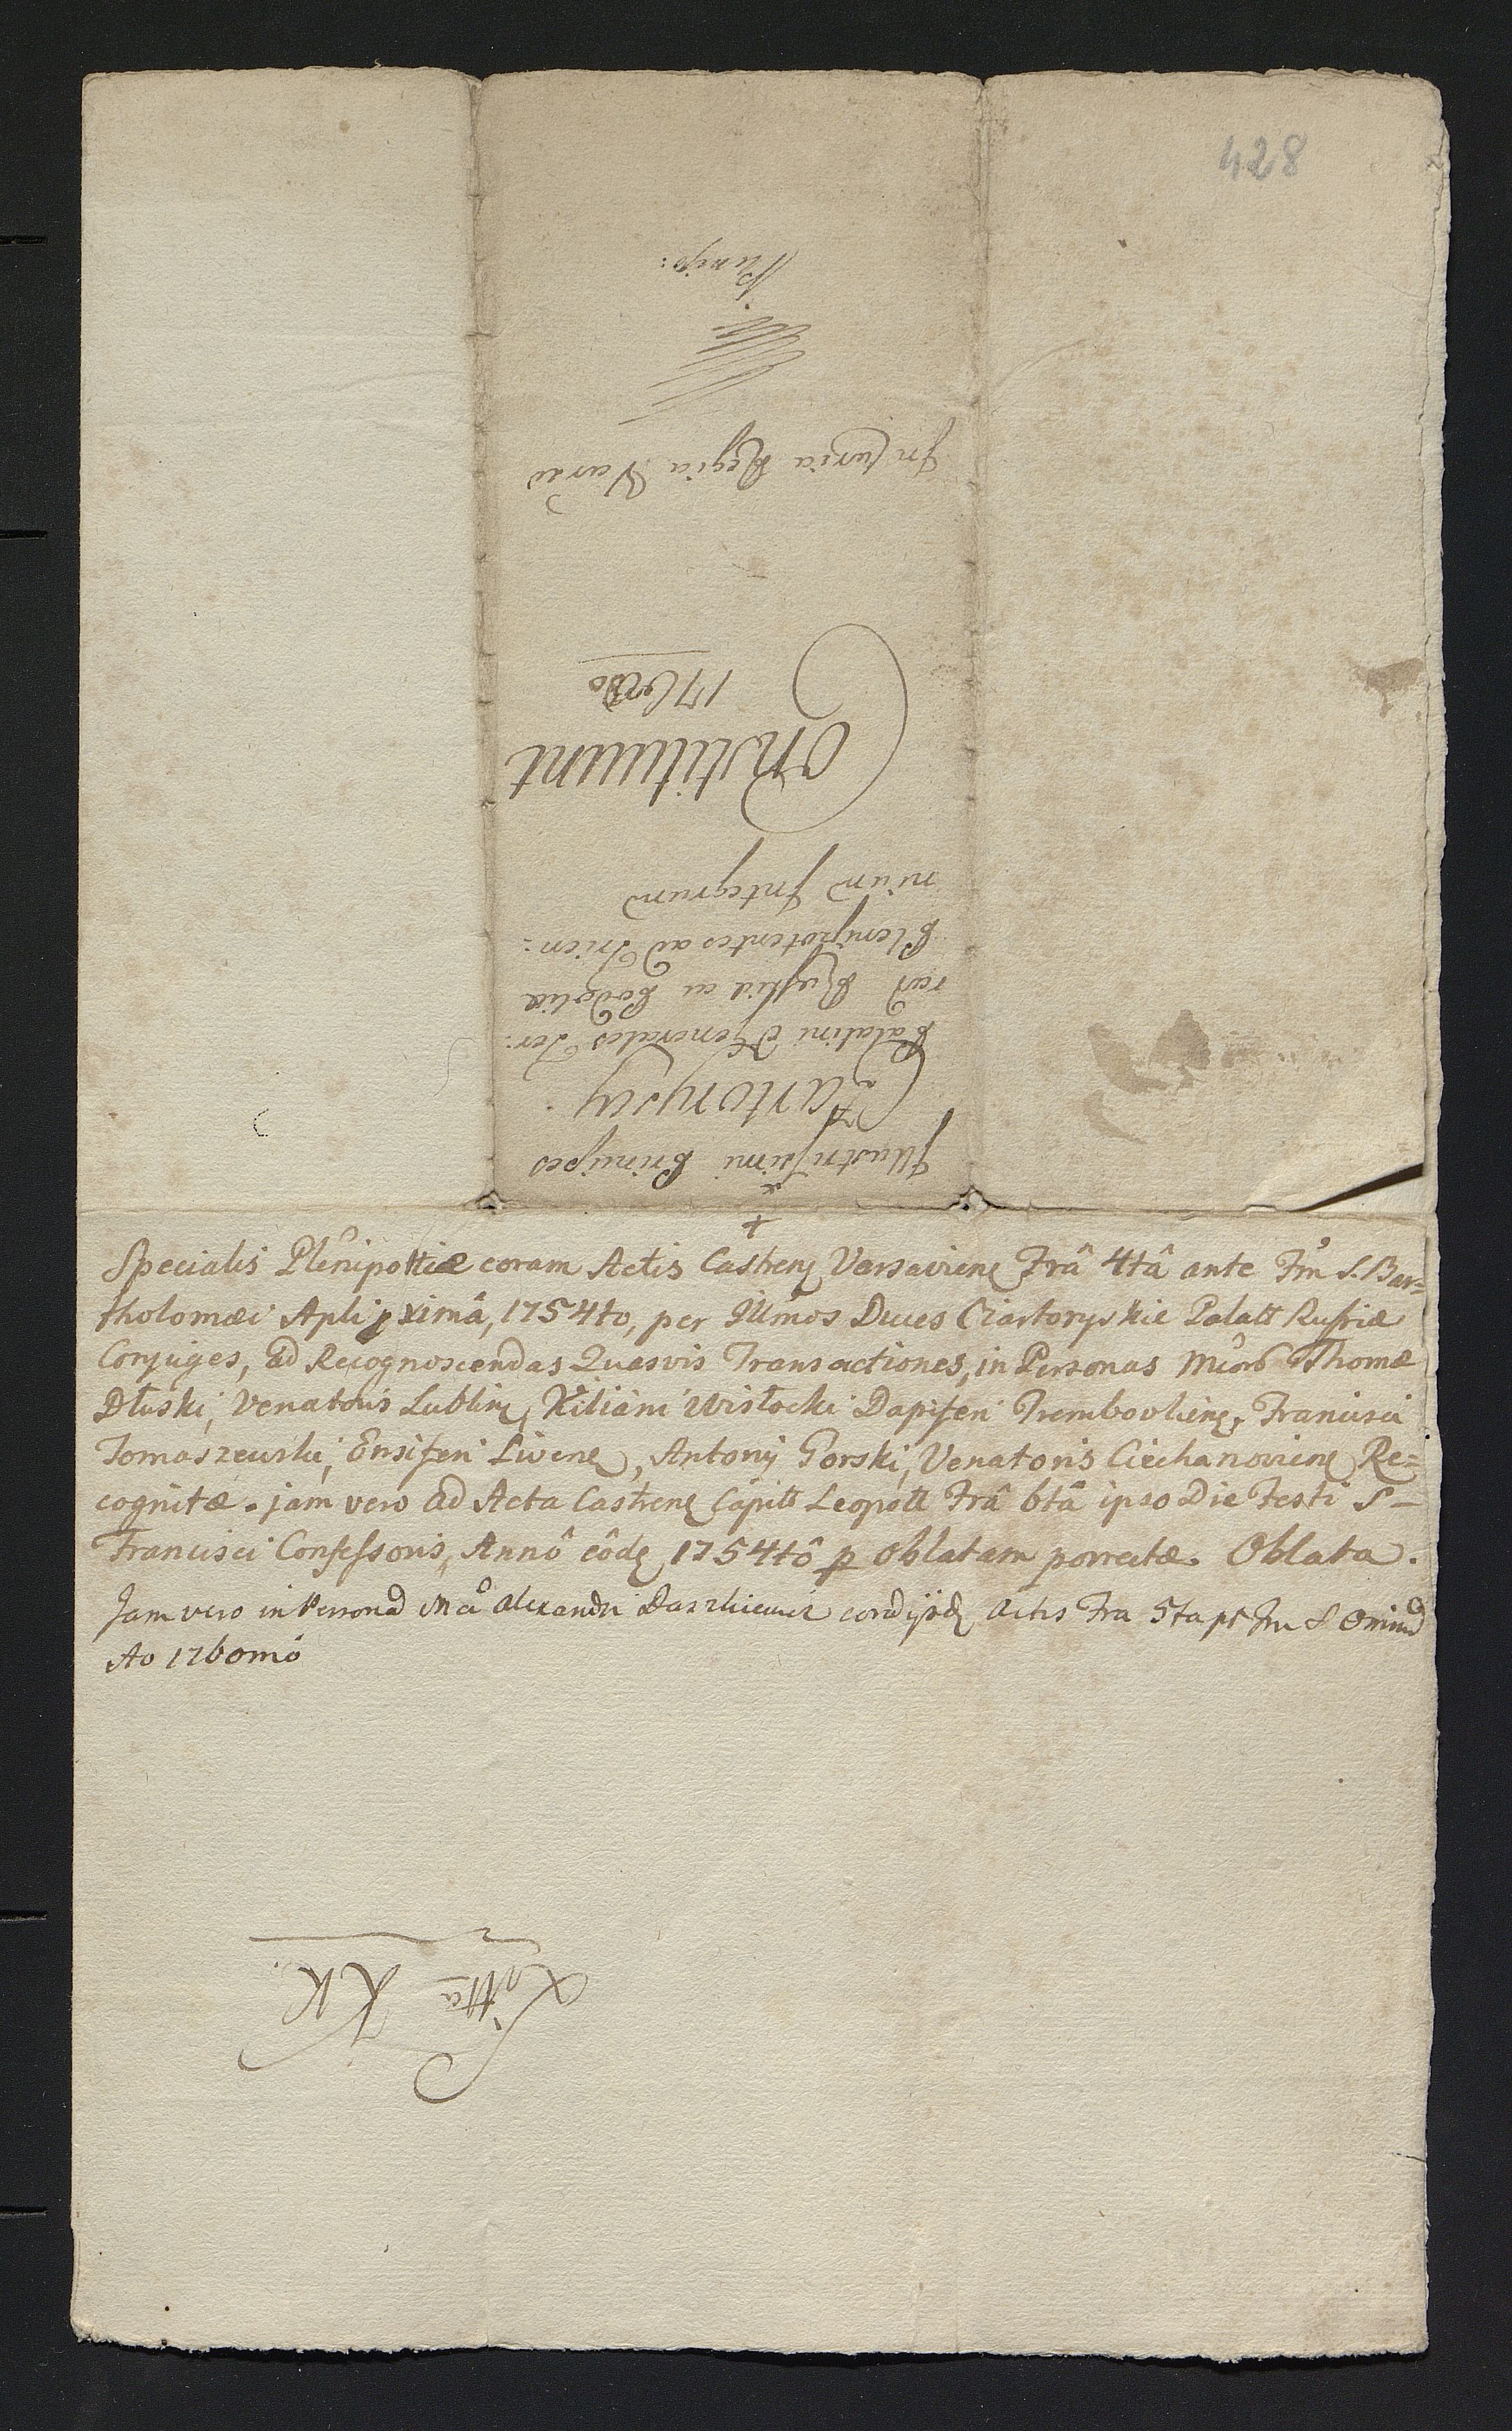 428
Illustrissimi Principes
Czartoryscy.
Palatini & Generales Ter:
rarũ Russiæ ac Podoliæ
Plenipotentes ad Trien:
nium Integrum
Constituunt
1762do
In Curia Regia Varsõ
Princip:
Specialis Plênipottiæ coram Actis Castren Varsavien Frâ 4tâ ante Fm̃ S. Bar=
tholomæi Apli pximâ, 1754to, per Illm̃os Duces Cziartoryskie Palatt Russiæ
Conjuges, ad Recognoscendas Quasvis Transactiones, in Personas Mcorũ Thomæ
Dłuski, Venatoris Lublin, Kiliani Wisłocki Dapiferi Trembovlien, Francisci
Tomaszewski, Ensiferi Livenẽ, Antonij Gorski, Venatoris Ciechanovienẽ Re=
cognitæ. jam vero ad Acta Castrenẽ Capitl Leopoll Frâ 6tâ ipso Die Festi S–
Francisci Confessoris, Annô eôdẽ 1754tô p oblatam porrectæ. Oblata.
Jam vero in Personã Mci Alexandri Daszkiewicz corã ijsdẽ Actis Fra 5ta pt Fm S Omniũ
Ao 1760mo
Litta KK.